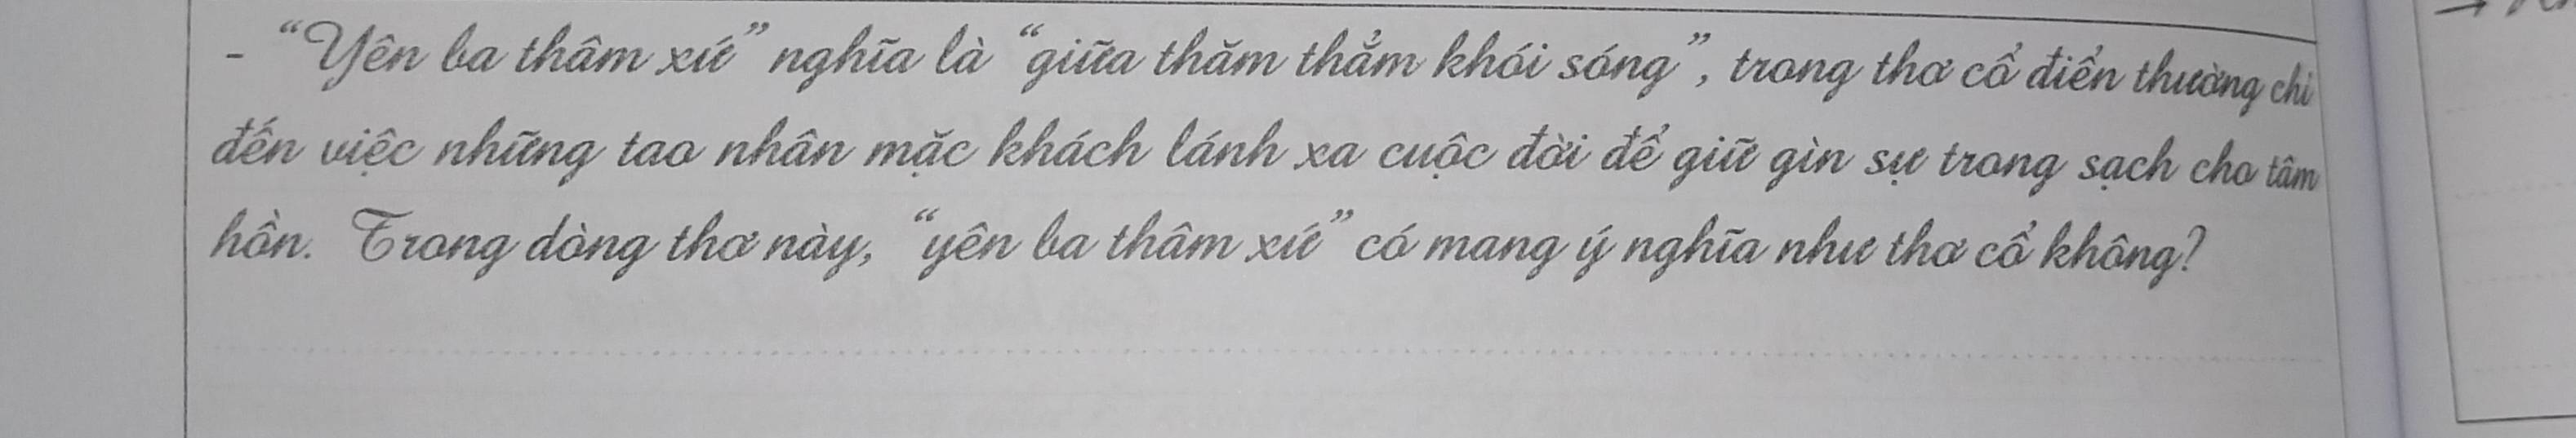 - “Yên ba thâm xứ” nghĩa là “giữa thăm thẳm khói sóng”, trong thơ cổ điển thường chỉ
đến việc những tao nhân mặc khách lánh xa cuộc đời để giữ gìn sự trong sạch cho tâm
hồn. Trong dòng thơ này, “yên ba thâm xứ” có mang ý nghĩa như thơ cổ không?